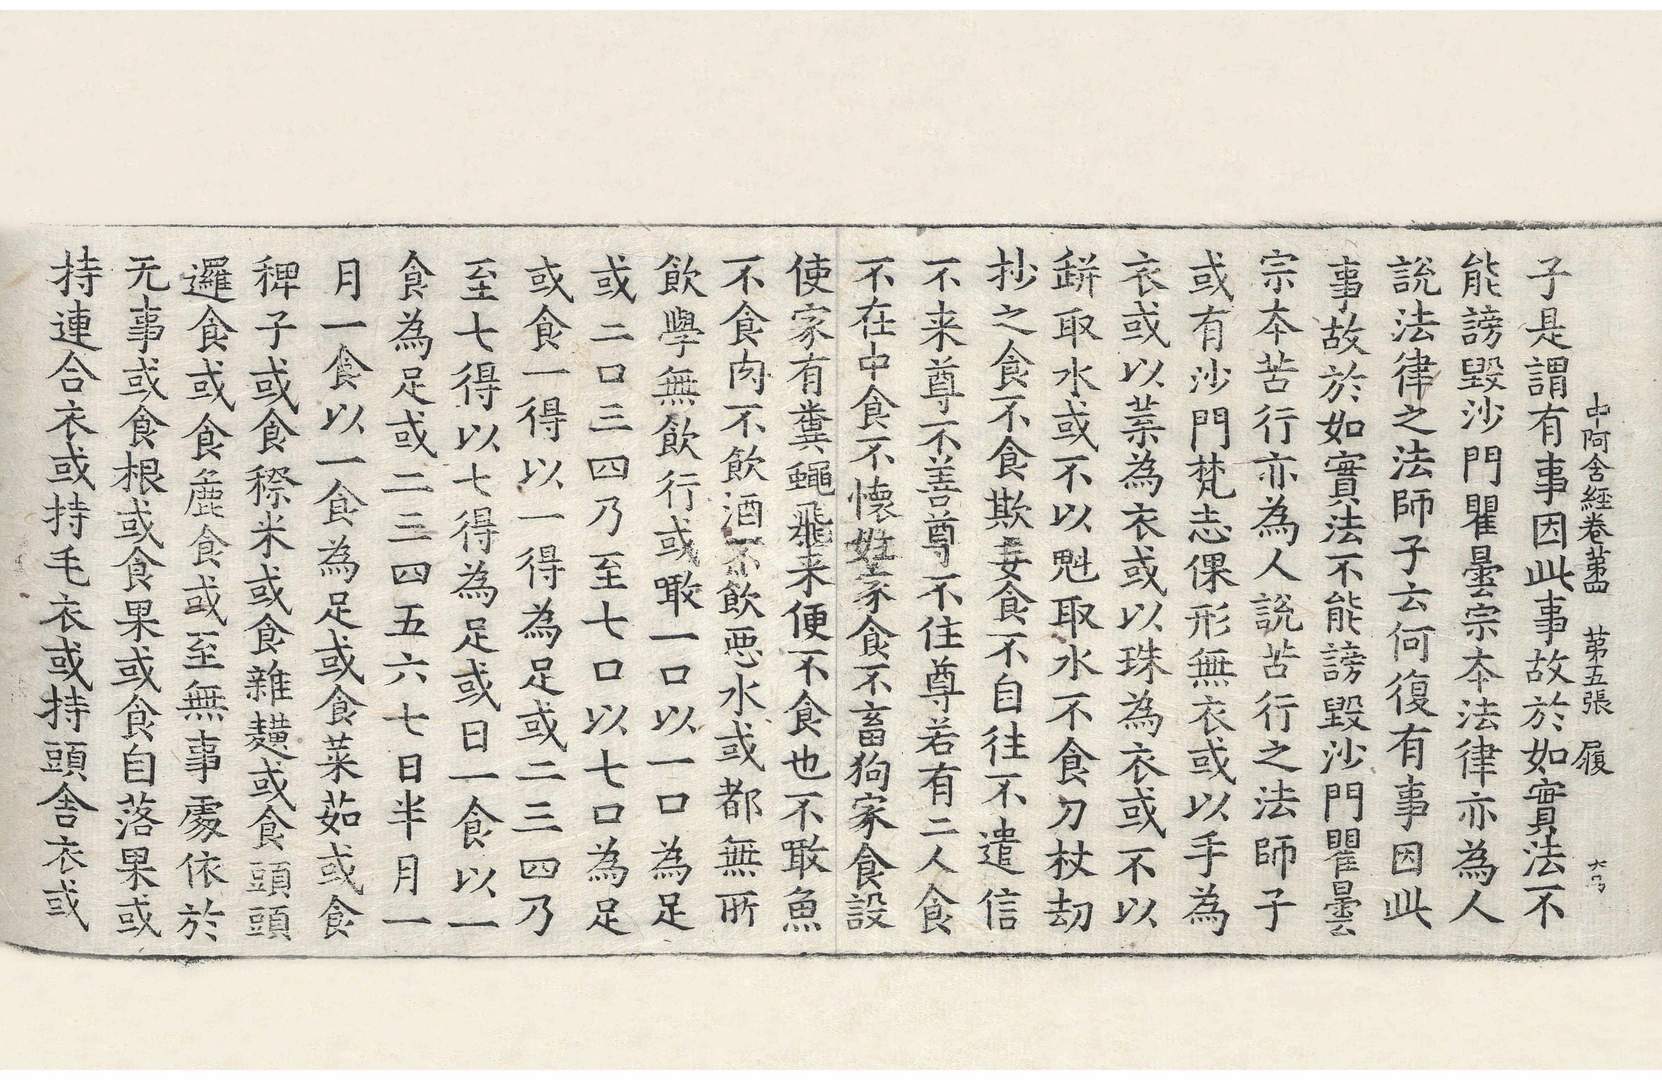 中阿含經卷苐四　苐五張　履
子是謂有事因此事故於如實法不
能謗毀沙門瞿曇宗夲法律亦為人
說法律之法師子云何復有事因此
事故於如實法不能謗毀沙門瞿曇云
宗夲苦行亦為人說苦行之法師子
或有沙門梵志倮形無衣或以手為
衣或以葉為衣或以珠為衣或不以
缾取水或不以魁取水不食刀杖劫
抄之食不食欺妄食不自往不遣信
不来尊不善尊不住尊若有二人食
不在中食不懷姙家食不畜狗家食設
使家有糞蠅飛来便不食也不噉魚
不食肉不飲酒不飲惡水或都無所
飲學無飲行或噉一口以一口為足
或二口三四乃至七口以七口為足
或食一得以一得為足或二三四乃
至七得以七得為足或日一食以一
食為足或二三四五六七日半月一
月一食以一食為足或食菜茹或食
稗子或食穄米或食雜𪍿或食頭頭
邏食或食麁食或至無事處依於
无事或食根或食果或食自落果或
持連合衣或持毛衣或持頭舍衣或